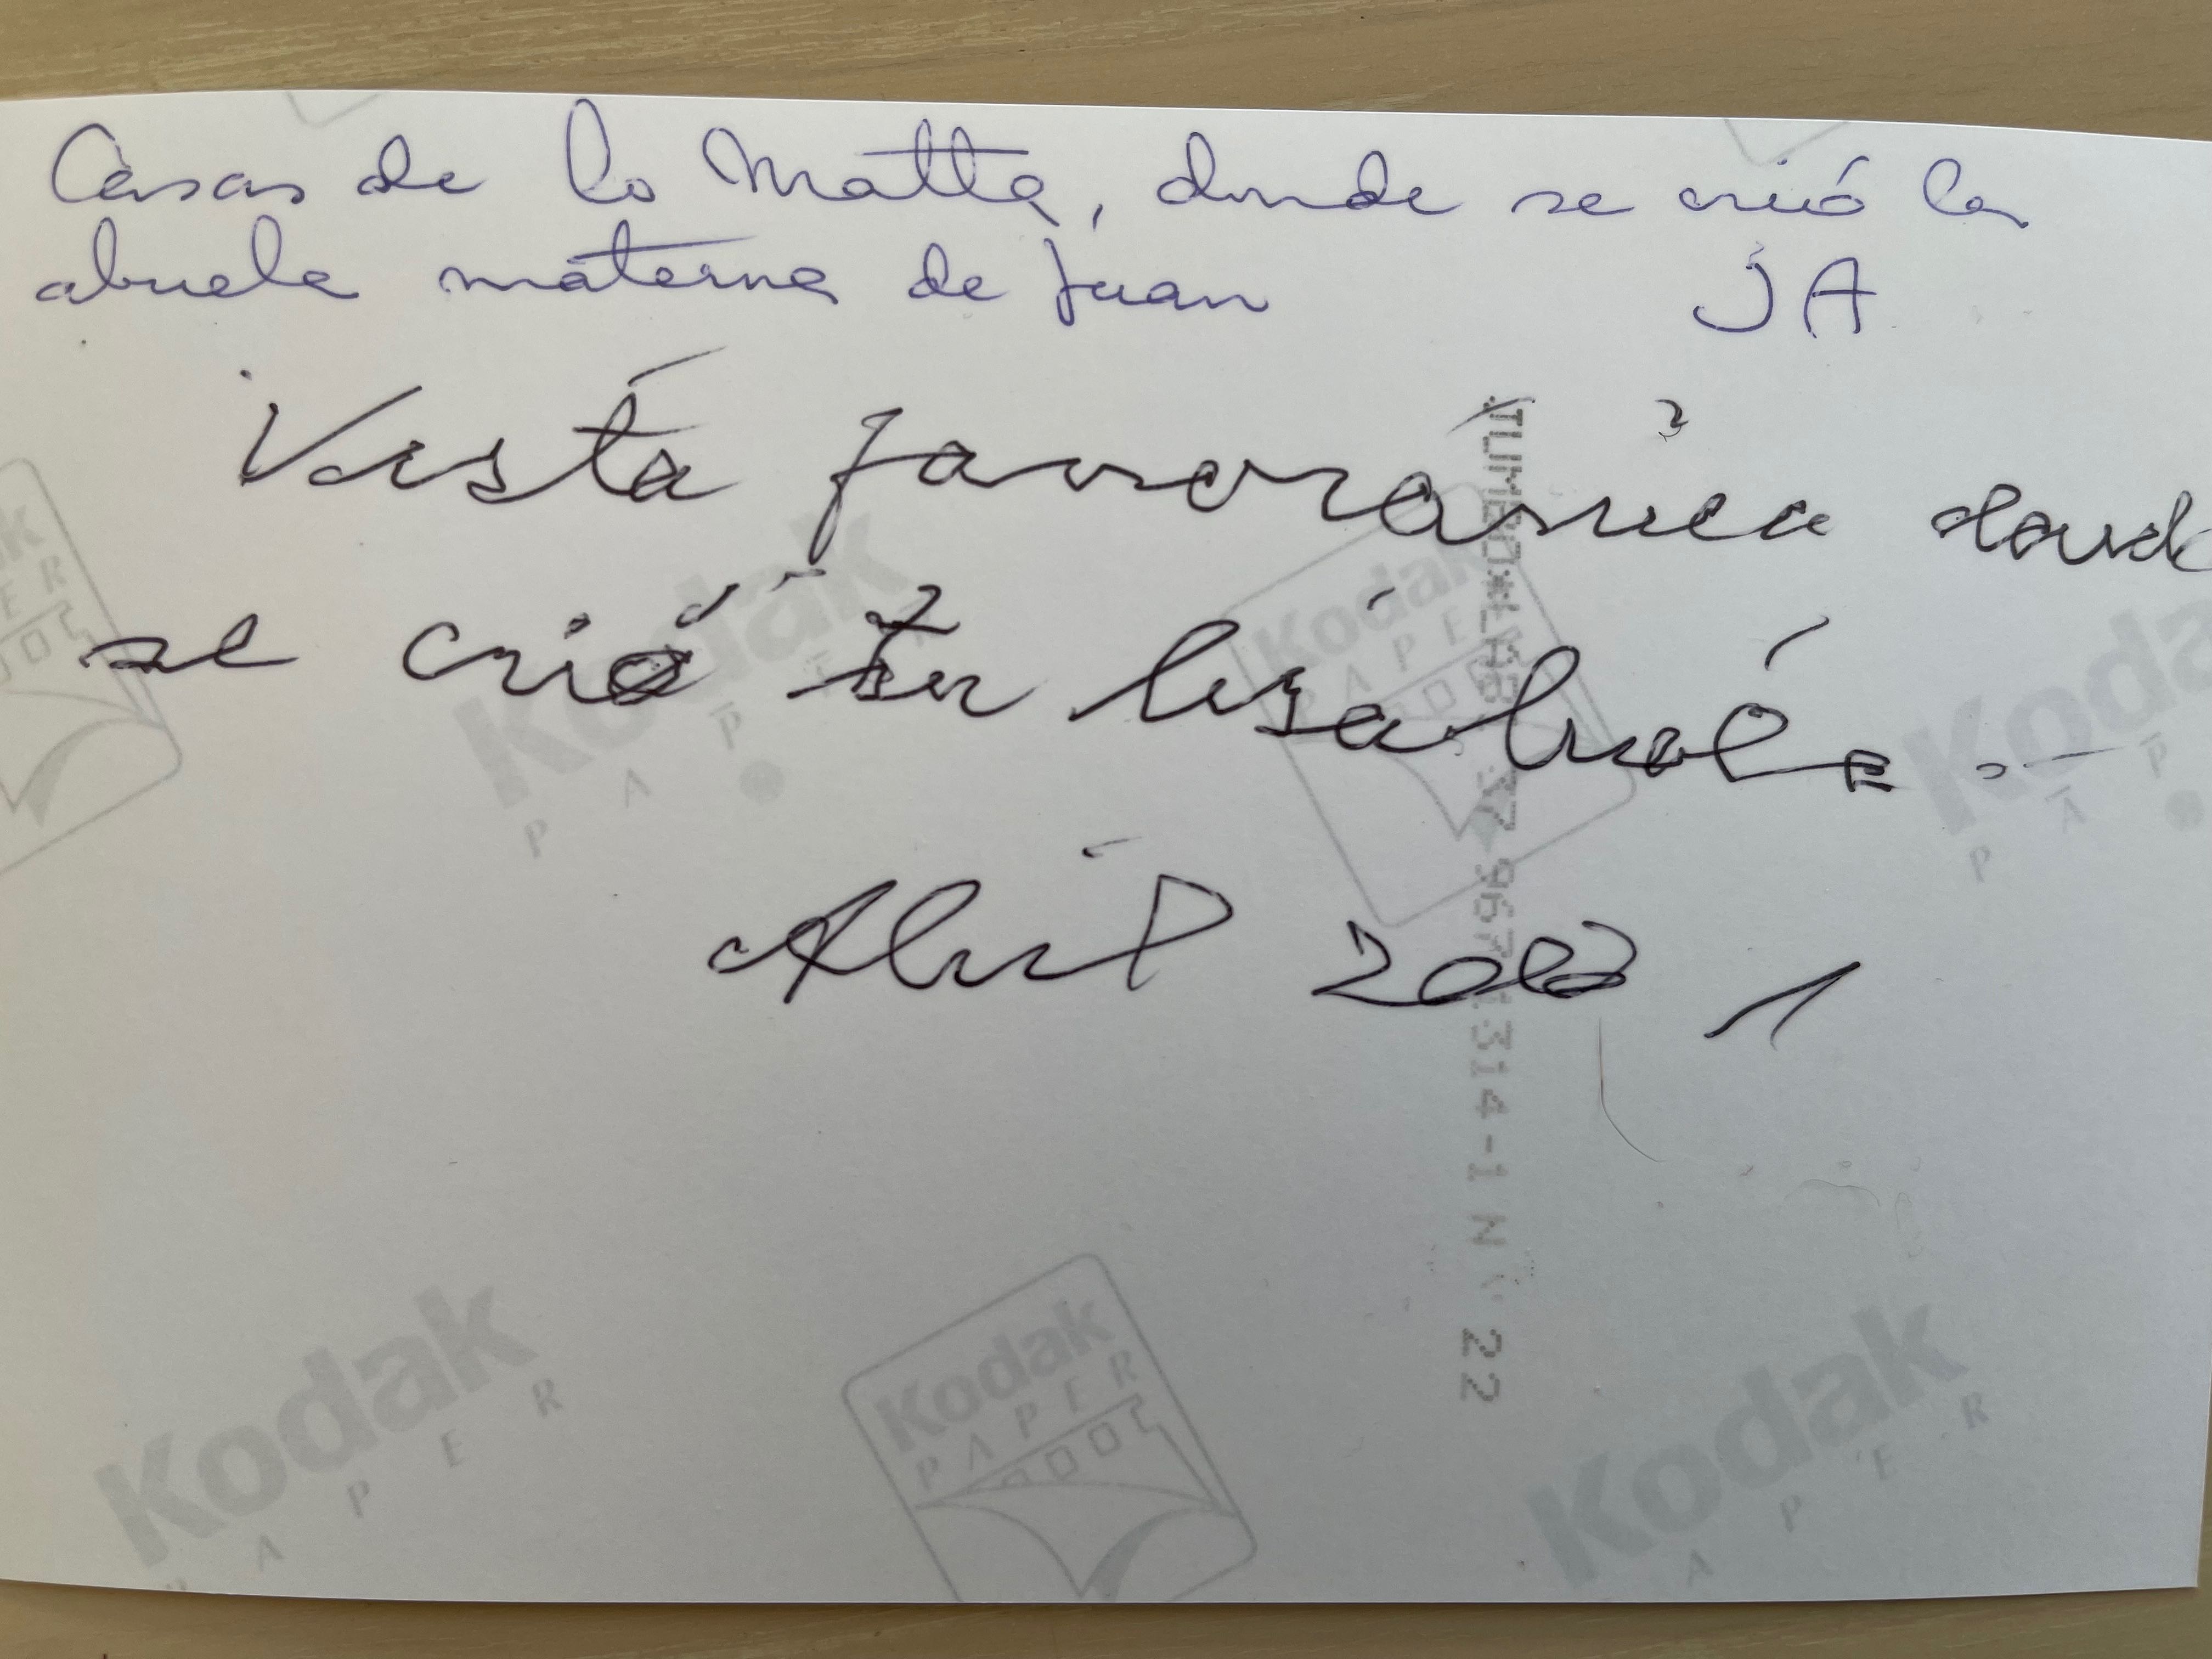 Casas de lo Matta, donde se crió la
abuela materna de Juan JA
Vista panorámica donde
se crió tu bisabuela.-
Abril 2003
JUMBO*LAB 37 967 1314-1 N 22
Kodak
PAPER
Kodak
PAPER
Kodak
PAPER
Kodak
PAPER
Kodak
PAPER
Kodak
PAPER